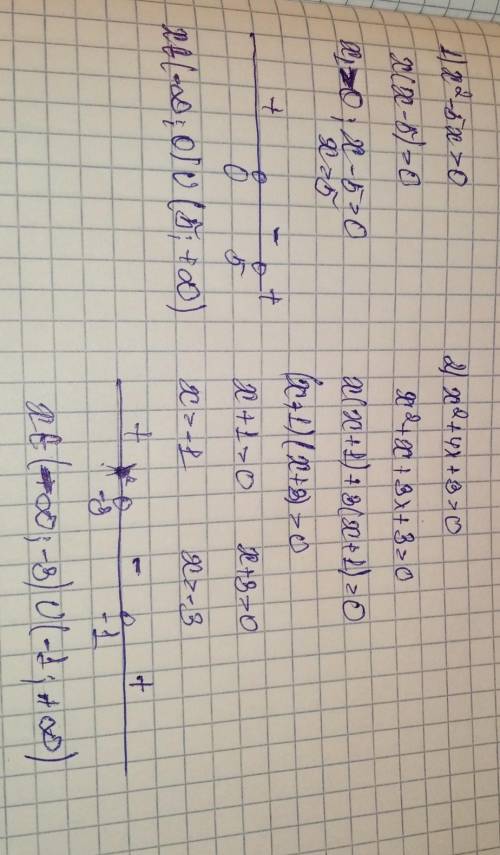 1) x²-5x>0
x(x-5)=0
x=0; x-5=0
x=5
+ - +
0 5
x∈(-∞; 0)∪(5; +∞)
2) x²+4x+3>0
x²+x+3x+3=0
x(x+1)+3(x+1)=0
(x+1)(x+3)=0
x+1=0 x+3=0
x=-1 x=-3
+ - +
-3 -1
x∈(-∞; -3)∪(-1; +∞)